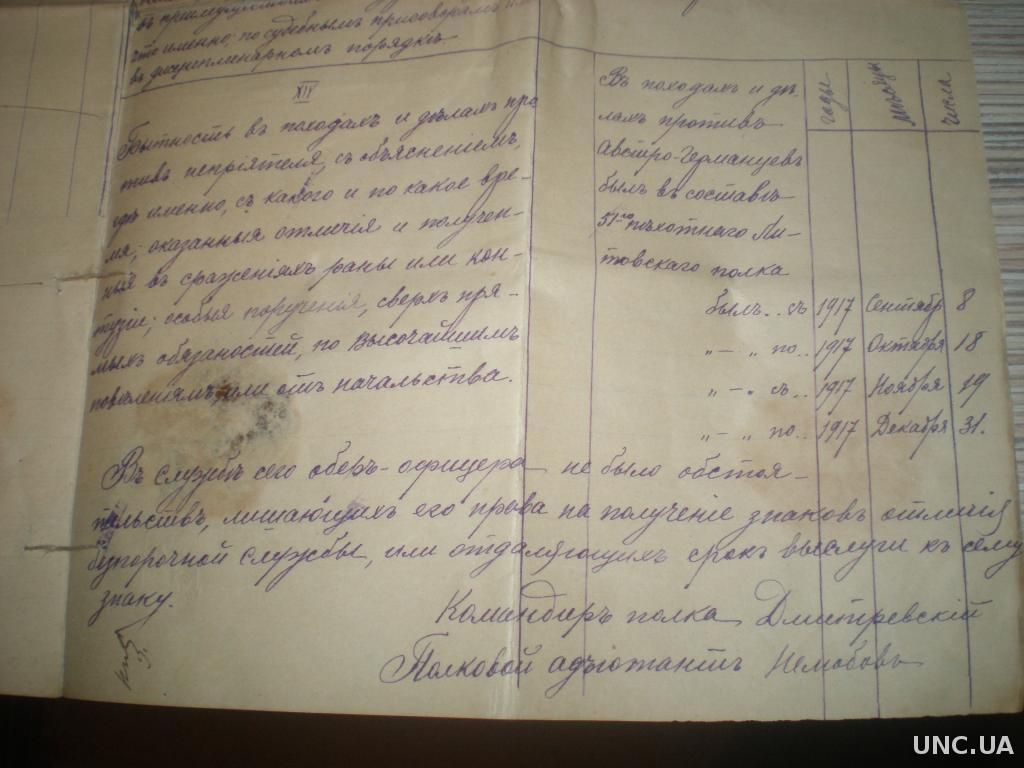 въ
что именно; по судебнымъ приговорамъ или
въ дисциплинарномъ порядкѣ.
XIV
Бытность въ походахъ и дѣлахъ про-
тивъ непріятеля, съ объясненіемъ,
гдѣ именно, съ какого и по какое вре-
мя; оказанныя отличія и получен-
ныя въ сраженіяхъ раны или кон-
тузіи; особыя порученія, сверхъ пря-
мыхъ обязаностей, по Высочайшимъ
повелѣніямъ, или отъ начальства.
Въ походахъ и дѣ-
лахъ противъ
Австро-Германцевъ
былъ въ составѣ
51-го пѣхотнаго Ли-
товскаго полка
годы
мѣсяцы
числа
былъ.. съ 1917 Сентябр 8
„ — „ по.. 1917 Октября 18
„ — „ съ.. 1917 Ноября 19
„ — „ по.. 1917 Декабря 31.
Въ службѣ сего оберъ-офицера не было обстоя-
тельствъ, лишающихъ его права на полученіе знаковъ отличія
безпорочной службы, или отдаляющихъ срокъ выслуги къ сему
знаку.
Командиръ полка Дмитревскій
Полковой адъютантъ
UNC.UA